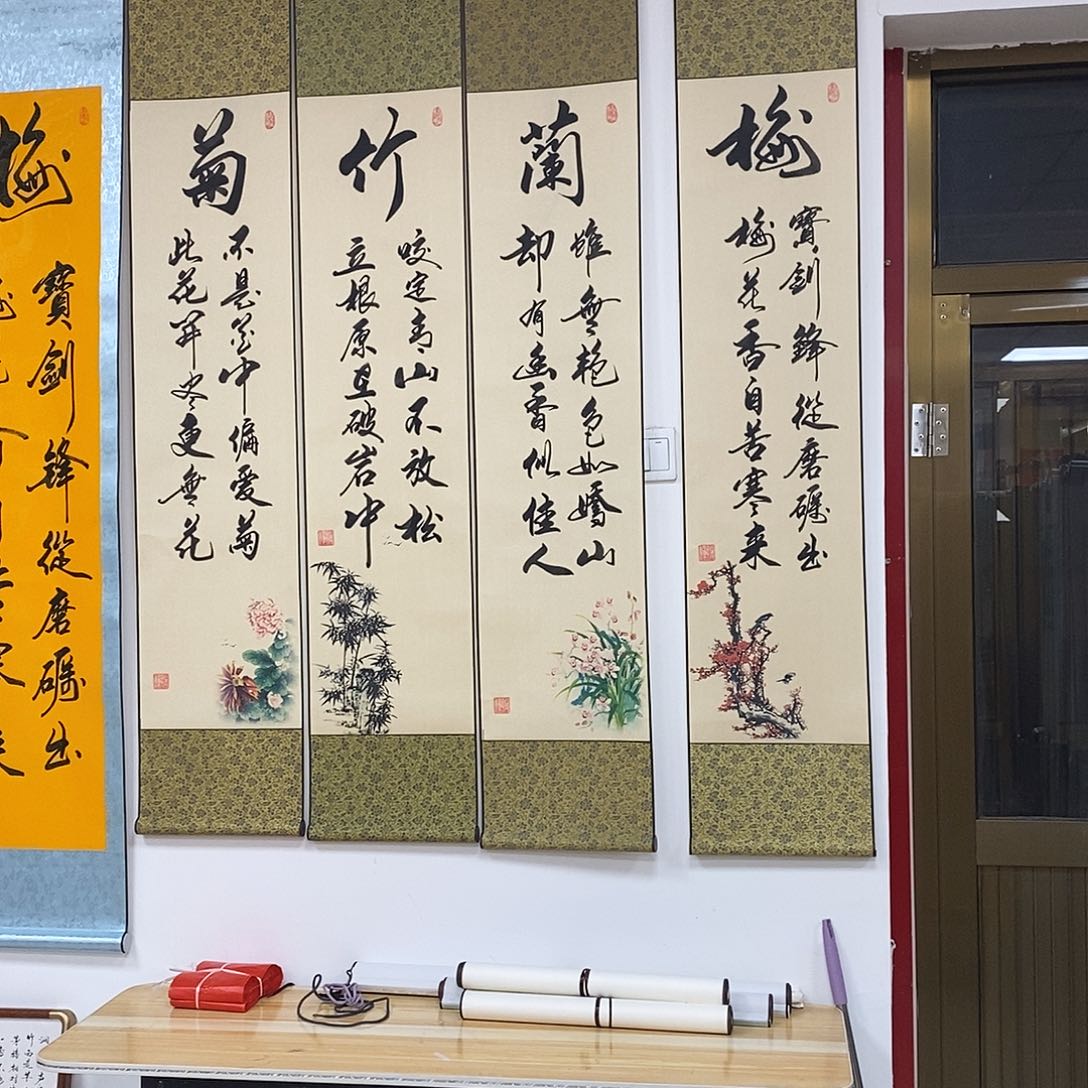 梅
寶劍鋒從磨礪出
梅花香自苦寒来
蘭
雖無艳色如嬌山
却有幽香似佳人
竹
咬定青山不放松
立根原在破岩中
菊
不是花中偏愛菊
此花开尽更無花
梅
寶劍鋒從磨礪出